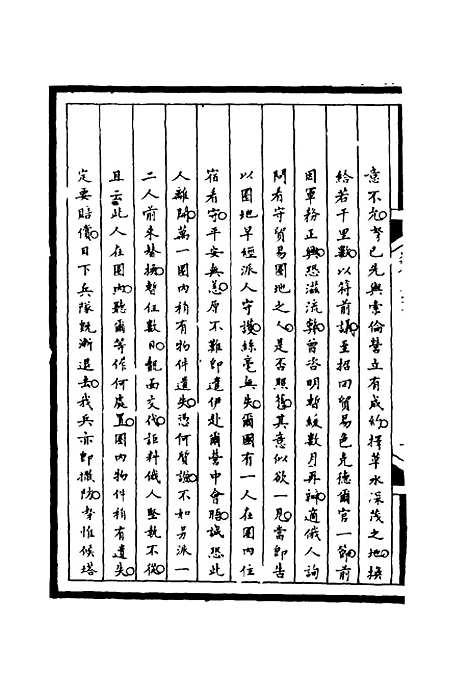 意不允。孥已先與索倫營立有成約。擇草水深茂之地。換
給若干里數。以符前議。至招回貿易色克德爾官一節。前
因軍務正興。恐滋流弊。曾咨明暫緩數月再辦。適俄人詢
問看守貿易圈地之人。是否照舊。其意似欲一見。當即告
以圈地早經派人守護。絲毫無失。爾國有一人在圈內住
宿看守。平安無恙。原不難即遣伊赴爾營中會晤。誠恐此
人離開。萬一圈內稍有物件遺失。憑何質證。不如另派一
二人前來替換。暫住數日。覿面交代。詎料俄人堅執不從。
且云此人在圈內。聽爾等作何處置。圈內物件稍有遺失。
定要賠償。目下兵隊既漸退去。我兵亦即撤防。孥惟候塔